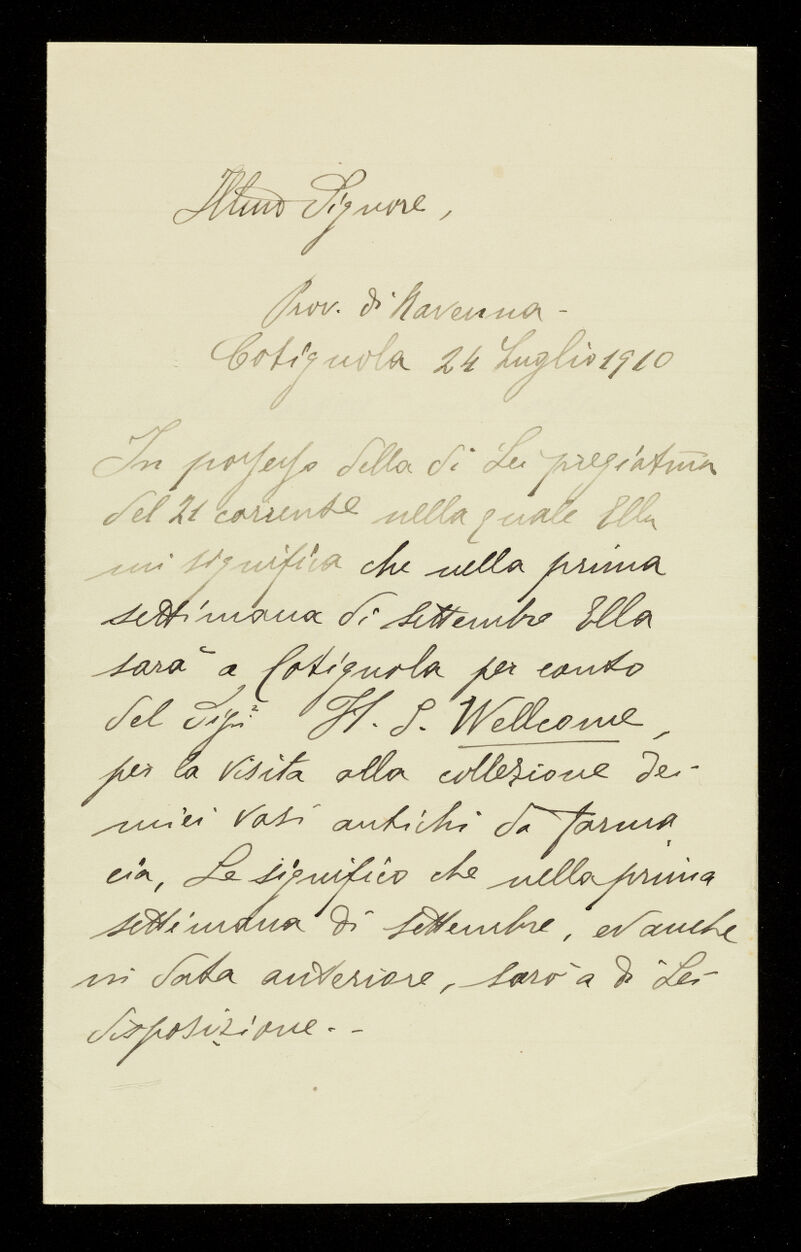 Illmo Signore,
Prov. di Ravenna -
Cotignola 24 Luglio 1910
In possesso della di Lei pregiatma
del 21 corrente nella quale Ella
mi significa che nella prima
settimana di Settembre Ella
sarà a Cotignola per conto
del Sigr H. S. Wellcome,
per la visita alla collezione dei
miei vasi antichi da farma
cia, Le significo che nella prima
settimana di Settembre, ed anche
in data anteriore, sarò a di Lei
disposizione. -